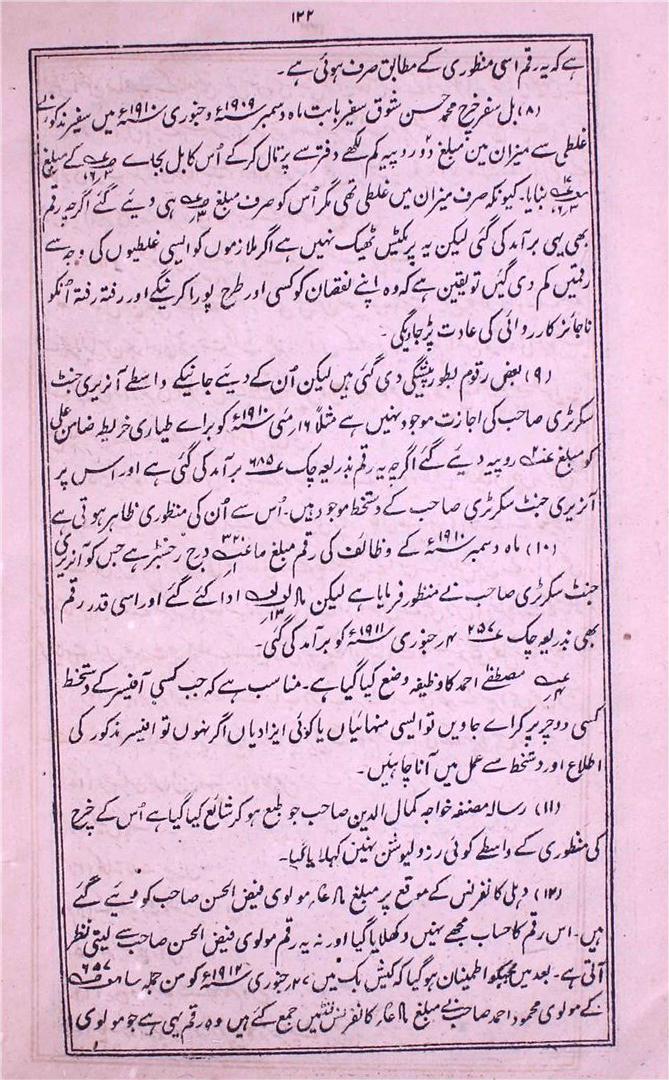 ۱۲۲
ہے کہ یہ رقم اسی منظوری کے مطابق صرف ہوئی ہے۔
(۸) بل سفر خرچ محمد حسن شوق سفیر بابت ماہ دسمبر ۱۹۰۹ء و جنوری ۱۹۱۰ء میں سفیر مذکور نے
غلطی سے میزان مین مبلغ دو روپیہ کم لکھے دفتر سے پرتال کرکے اُس کا بل بجاے کے مبلغ
بنایا۔ کیونکہ صرف میزان میں غلطی تھی مگر اُس کو صرف مبلغ ہی دیے گئے اگرچہ رقم
بھی یہی برآمد کی گئی لیکن یہ پریکٹیس ٹھیک نہیں ہے اگر ملازموں کو ایسی غلطیوں کی وجہ سے
رقمیں کم دی گئیں تو یقین ہے کہ وہ اپنے نقصان کو کسی اور طرح پورا کرینگے اور رفتہ رفتہ اُنکو
ناجائز کارروائی کی عادت پڑجایگی۔
(۹) بعض رقوم بطور پیشگی دی گئی ہیں لیکن اُن کے دیئے جانیکے واسطے آنریری جنٹ
سکرٹری صاحب کی اجازت موجود نہیں ہے مثلاً ۱۶ مئی ۱۹۱۰ء کو براے طیاری خریطہ ضامن علی
کو مبلغ روپیہ دیئے گئے اگرچہ یہ رقم بذریعہ چک ۶۸۵ برآمد کی گئی ہے اور اس پر
آنریری جنٹ سکرٹری صاحب کے دستخط موجود ہیں۔ اُس سے اُن کی منظوری ظاہر ہوتی ہے
(۱۰) ماہ دسمبر ۱۹۱۰ء کے وظائف کی رقم مبلغ درج رجسٹر ہے جس کو آنریری
جنٹ سکرٹری صاحب نے منظور فرمایا ہے لیکن ادا کئے گئے اور اسی قدر رقم
بھی بذریعہ چک ۲۵۷ ۴ جنوری ۱۹۱۱ء کو برآمد کی گئی۔
مصطفےٰ احمد کا وظیفہ وضع کیا گیا ہے۔ مناسب ہے کہ جب کسی آفیسر کے دستخط
کسی ووچر پر کراے جاویں تو ایسی منہائیاں یا کوئی ایزادیاں اگر ہوں تو افیسر مذکور کی
اطلاع اور دستخط سے عمل میں آنا چاہئیں۔
(۱۱) رسالہ مصنفہ خواجہ کمال الدین صاحب جو طبع ہو کر شائع کیا گیا ہے اُس کے خرچ
کی منظوری کے واسطے کوئی رزولیوشن نہین کہلایا گیا۔
(۱۲) دہلی کانفرنس کے موقع پر مبلغ مولوی فیض الحسن صاحب کو دیئے گئے
ہیں۔ اس رقم کا حساب مجھے نہیں دکھلایا گیا اور نہ یہ رقم مولوی فیض الحسن صاحب سے لیتی نظر
آتی ہے۔ بعد میں مجھکو اطمینان ہو گیا کہ کیش بک میں ۲۷ جنوری ۱۹۱۲ء کو من جملہ
کے مولوی محمود احمد صاحب نے مبلغ کانفرنس فنڈ میں جمع کئے ہیں وہ رقم یہی ہے جو مولوی